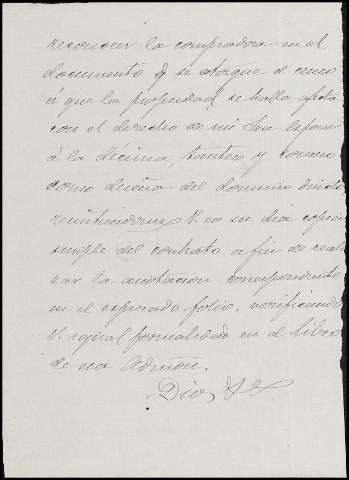 reconocer la compradora en el
documento q se otorgue el censo
á que la propiedad se halla afecta
con el derecho de mi Sra Esposa
á la décima, tanteo y comiso
como dueña del dominio directo
remitiendome V. en su dia copia
simple del contrato a fin de reali
zar la anotacion correspondiente
en el expresado folio, verificando
V. igual formalidad en el libro
de esa Admon.
Dios &